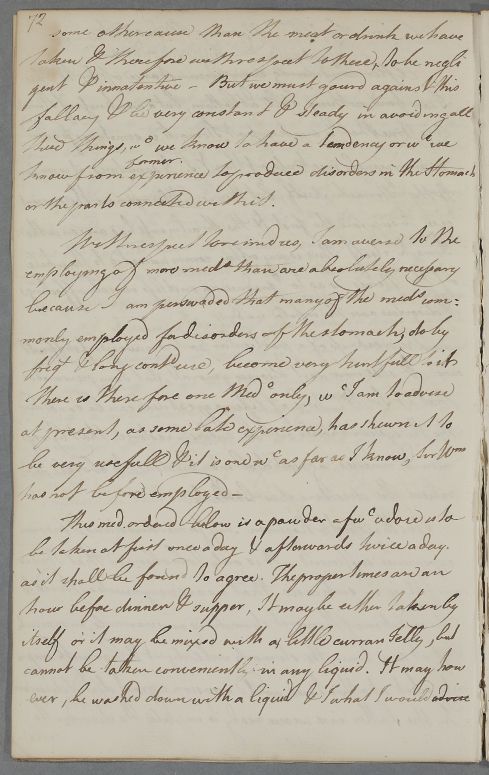 72
some other cause than the meat or drink we have
taken & therefore with respect to these, to be negli
gent & inattentive – But we must guard against this
fallacy & be very constant & steady in avoiding all
those things, wc we know to have a tendency or wc we
former
know from experience to produce disorders in the Stomach
or the parts connected with it.
With respect to remedies, I am averse to the
employing of more meds than are absolutely necessary
because I am perswaded that many of the meds com=
monly employed for disorders of the stomach, do by
freqt & long contd use, become very hurtfull to it
There is therefore one Medc only, wc I am to advise
at present, as some late experience, has shewn it to
be very usefull & it is one wc as far as I know, Sir Wm
has not before employed –
This med. ordered below is a powder of wc a dose is to
be taken at first once a day & afterwards twice a day.
as it shall be found to agree. The proper times are an
hour before dinner & supper, It may be either taken by
itself or it may be mixed with a little curran Jelly, but
cannot be taken conveniently in any liquid. It may how
ever, be washed down with a liquid & what I would advise